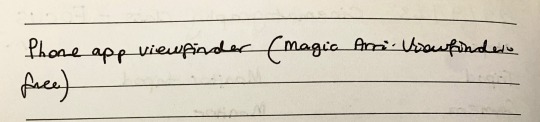 Phone app viewfinder (Magic Arri Viewfinder
free)